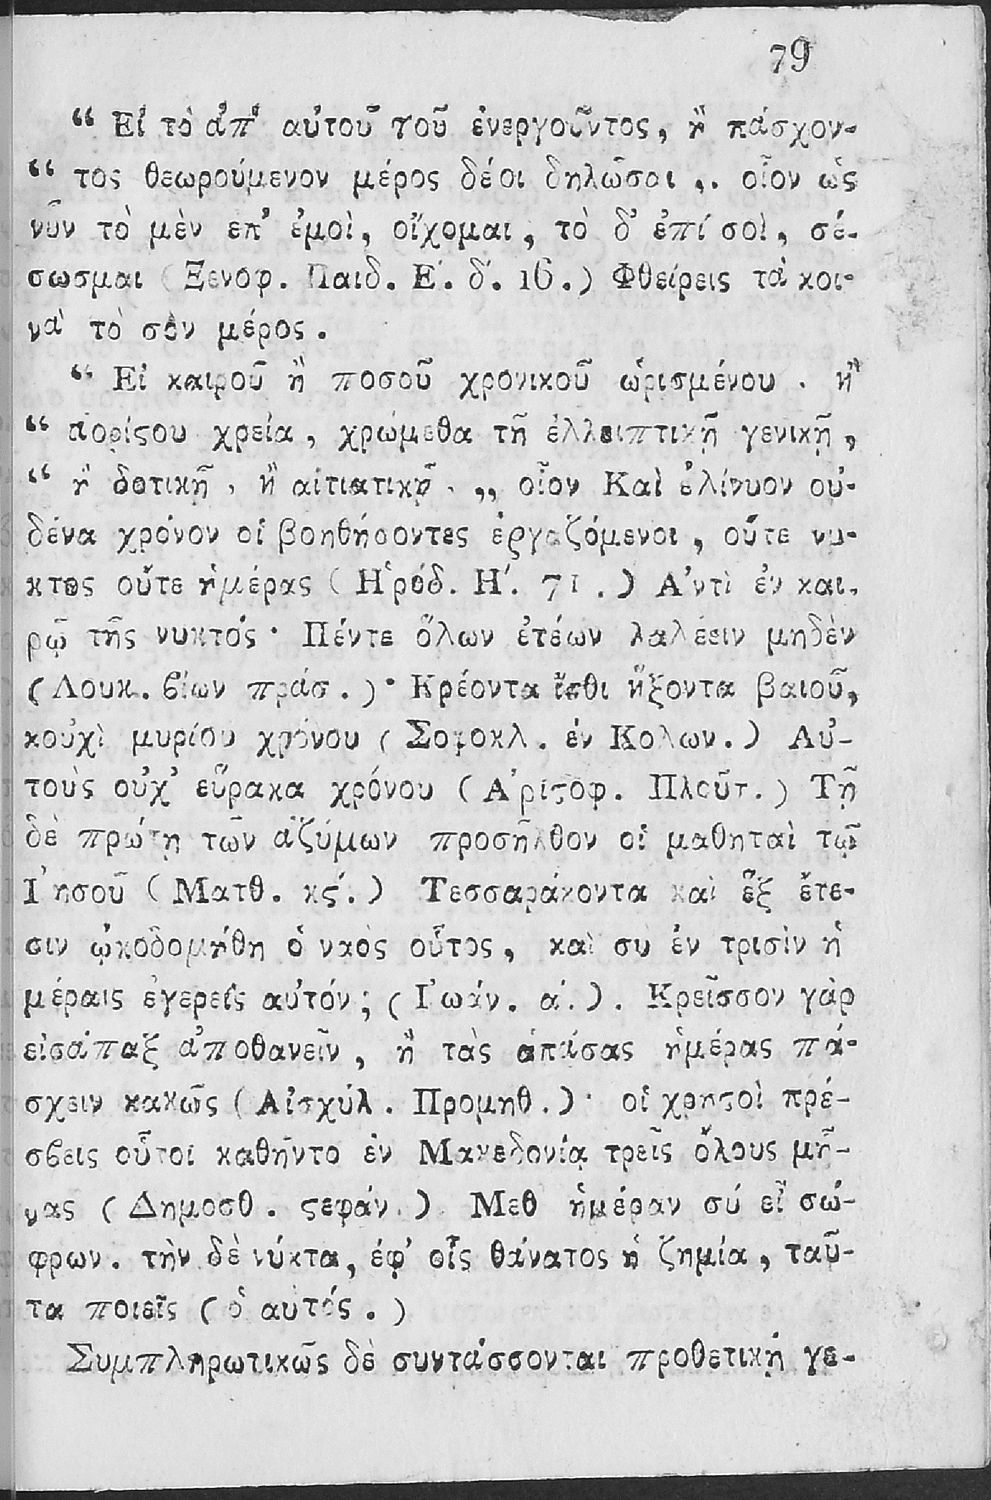 79
“ Εἰ τὸ ἀπ’ αὐτοῦ τοῦ ἐνεργοῦντος, ἢ πάσχον-
“ τος θεωρούμενον μέρος δέοι δηλῶσαι ,. οἷον ὡς
νῦν τὸ μὲν ἐπ’ ἐμοὶ, οἴχομαι, τὸ δ’ ἐπί σοὶ, σέ-
σωσμαι (Ξενοφ. Παιδ. Ε΄. δ΄. 16.) Φθείρεις τὰ κοι-
νὰ τὸ σὸν μέρος.
“ Εἰ καιροῦ ἢ ποσοῦ χρονικοῦ ὡρισμένου . ἢ
“ ἀορίςου χρεία, χρώμεθα τῇ ἐλλειπτικῇ γενικῇ,
“ ἢ δοτικῇ, ἢ αἰτιατικῇ. ,, οἷον Καὶ ἐλίνυον οὐ-
δένα χρόνον οἱ βοηθήσοντες ἐργαζόμενοι, οὔτε νυ-
κτὸς οὔτε ἡμέρας (Ἡρόδ. Η΄. 71.) Ἀντὶ ἐν και-
ρῷ τῆς νυκτός· Πέντε ὅλων ἐτέων λαλέειν μηδὲν
(Λουκ. βίων πράσ.)· Κρέοντα ἴσθι ἥξοντα βαιοῦ,
κοὐχὶ μυρίου χρόνου (Σοφοκλ. ἐν Κολων.) Αὐ-
τοὺς οὐχ’ εὕρακα χρόνου (Ἀρίςοφ. Πλοῦτ.) Τῇ
δὲ πρώτῃ τῶν ἀζύμων προσῆλθον οἱ μαθηταὶ τῷ
Ἰησοῦ (Ματθ. κς΄.) Τεσσαράκοντα καὶ ἓξ ἔτε-
σιν ᾠκοδομήθη ὁ ναὸς οὗτος, καὶ σὺ ἐν τρισὶν ἡ
μέραις ἐγερεῖς αὐτόν; (Ἰωάν. ά.). Κρεῖσσον γὰρ
εἰσάπαξ ἀποθανεῖν, ἢ τὰς ἁπάσας ἡμέρας πά-
σχειν κακῶς (Αἰσχύλ. Προμηθ.)· οἱ χρηςοὶ πρέ-
σβεις οὗτοι καθῆντο ἐν Μακεδονίᾳ τρεῖς ὅλους μῆ-
νας (Δημοσθ. ςεφάν.) Μεθ ἡμέραν σύ εἶ σώ-
φρων. τὴν δὲ νύκτα, ἐφ’ οἷς θάνατος ἡ ζημία, ταῦ-
τα ποιεῖς (ὁ αὐτός.)
Συμπληρωτικῶς δὲ συντάσσονται προθετικὴ γε-